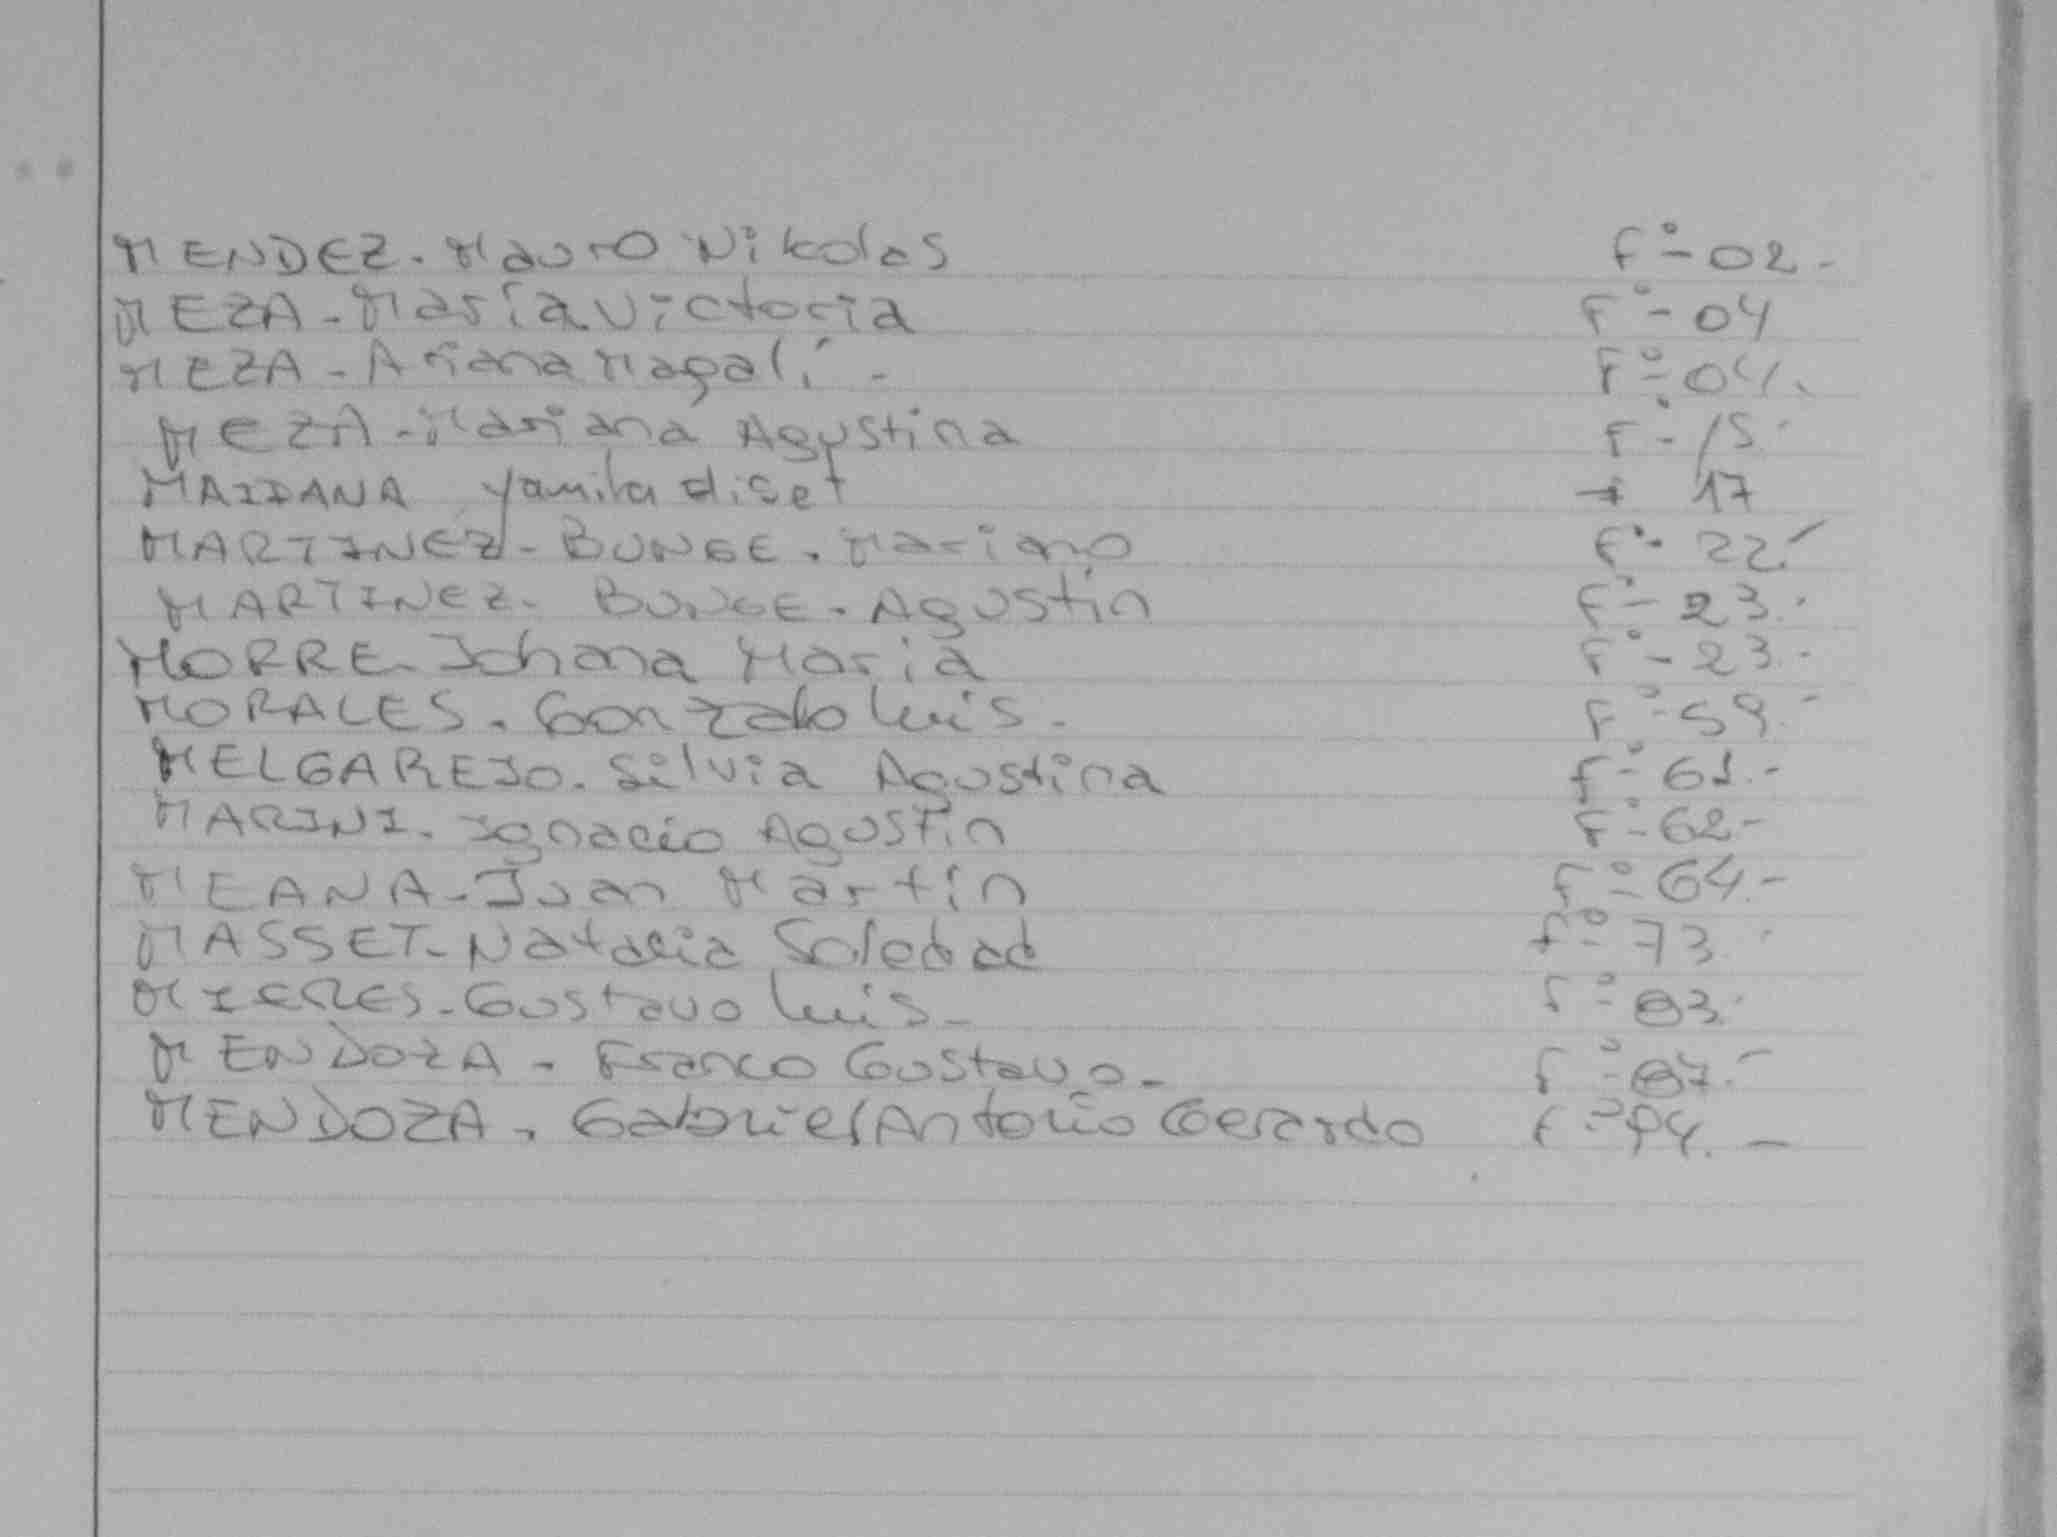 MENDEZ. Mauro Nikolas F°- 02 -
MEZA - María Victoria F°- 04
MEZA - Ariana Magalí - F°- 04.
MEZA - Mariana Agustina F°- 15.
MAIDANA Yamila 17
MARTINEZ - BUNGE. Mariano F°- 22
MARTINEZ - BUNGE. Agustín F°- 23.
MORRE Johana Maria F°- 23.-
MORALES. Gonzalo Luis. F°- 59.-
MELGAREJO. Silvia Agustina F°- 61.-
MARINI. Ignacio Agustín F°- 62-
MEANA - Juan Martín F°- 64.-
MASSET - Natalia Soledad F°- 73.
MIERES - Gustavo Luis - F°- 83.
MENDOZA - Franco Gustavo - F°- 87.-
MENDOZA. Gabriel Antonio Gerardo F°- 94. -